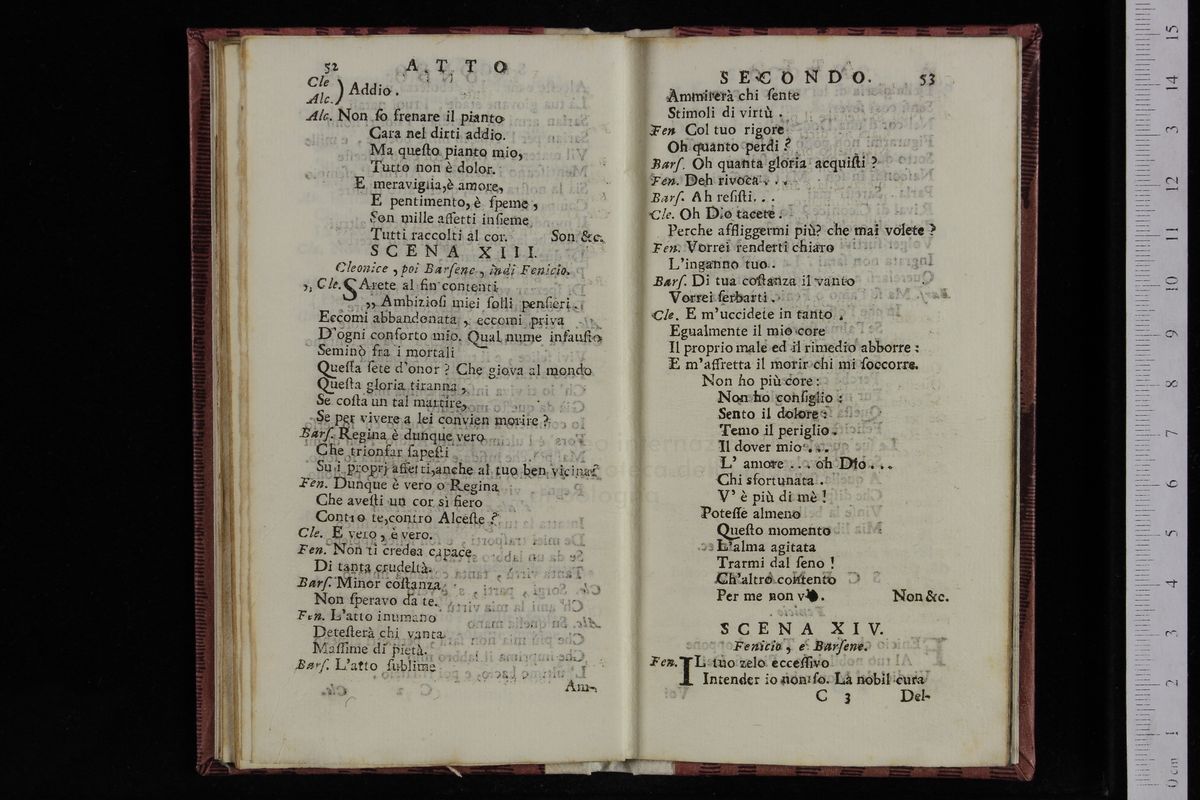 52 ATTO
Cle
Alc.) Addio.
Alc. Non ſo frenare il pianto
Cara nel dirti addio.
Ma queſto pianto mio,
Tutto non è dolor.
E meraviglia,è amore,
E pentimento, è ſpeme,
Son mille affetti inſieme
Tutti raccolti al cor. Son &c.
SCENA XIII.
Cleonice, poi Barſene, indi Fenicio.
,, Cle. SArete al fin contenti
,, Ambizioſi miei folli penſieri.
Eccomi abbandonata, eccomi priva
D'ogni conforto mio. Qual nume infauſto
Seminò fra i mortali
Queſta ſete d'onor? Che giova al mondo
Queſta gloria tiranna,
Se coſta un tal martire,
Se per vivere a lei convien morire?
Barſ. Regina è dunque vero
Che trionfar ſapeſti
Su i proprj affetti,anche al tuo ben vicina?
Fen. Dunque è vero o Regina
Che aveſti un cor sì fiero
Contro te,contro Alceſte?
Cle. E vero, è vero.
Fen. Non ti credea capace
Di tanta crudeltà.
Barſ. Minor coſtanza
Non ſperavo da te.
Fen. L'atto inumano
Deteſterà chi vanta
Maſſime di pietà.
Barſ. L'atto ſublime
Am-
SECONDO. 53
Ammirerà chi ſente
Stimoli di virtù.
Fen Col tuo rigore
Oh quanto perdi?
Barſ. Oh quanta gloria acquiſti?
Fen. Deh rivoca...
Barſ. Ah reſiſti...
Cle. Oh Dio tacete.
Perche affliggermi più? che mai volete?
Fen. Vorrei renderti chiaro
L'inganno tuo.
Barſ. Di tua coſtanza il vanto
Vorrei ſerbarti.
Cle. E m'uccidete in tanto.
Egualmente il mio core
Il proprio male ed il rimedio abborre:
E m'affretta il morir chi mi ſoccorre.
Non ho più core:
Non ho conſiglio:
Sento il dolore:
Temo il periglio.
Il dover mio....
L' amore ... oh Dio...
Chi sfortunata.
V' è più di mè!
Poteſſe almeno
Queſto momento
L'alma agitata
Trarmi dal ſeno!
Ch'altro contento
Per me non v'è. Non &c.
SCENA XIV.
Fenicio, e Barſene.
Fen. IL tuo zelo ecceſſivo
Intender io non ſo. La nobil cura
C 3 Del-